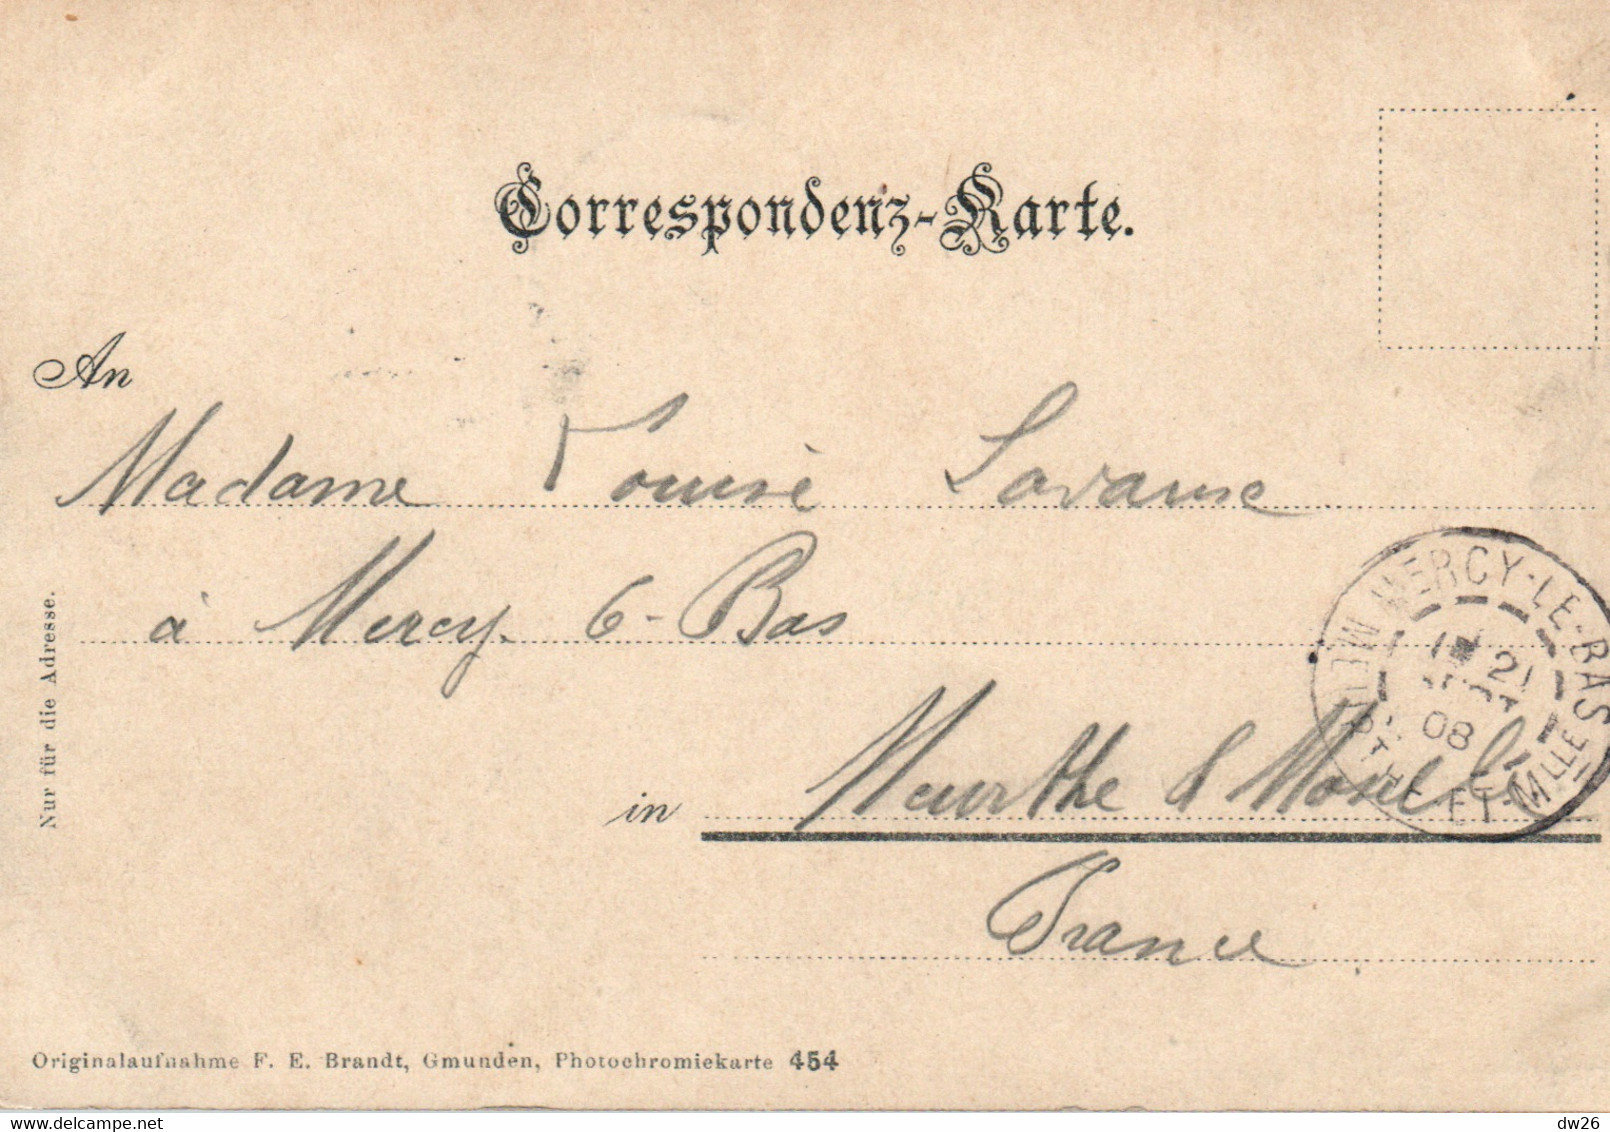 Correspondenz-Karte.
An
Madame Louise
à Mercy-6-Bas
in Meurthe & Moselle
France
Nur für die Adresse.
MERCY-LE-BAS
21
08
MTHE-ET-MLLE
Originalaufnahme F. E. Brandt, Gmunden, Photochromiekarte 454
dw26